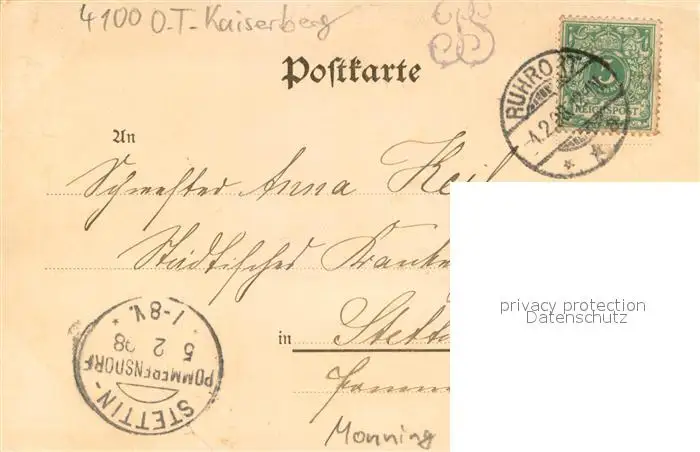 4100 O.T-Kaiserberg
Postkarte
RUHRORT
4.2.98
5
REICHSPOST
An
Schwester Anna Keil
Städtisches Kranken
in Stettin
Pomm
Monning
STETTIN-
POMMERENSDORF
5 2 98
1-8V.
privacy protection
Datenschutz